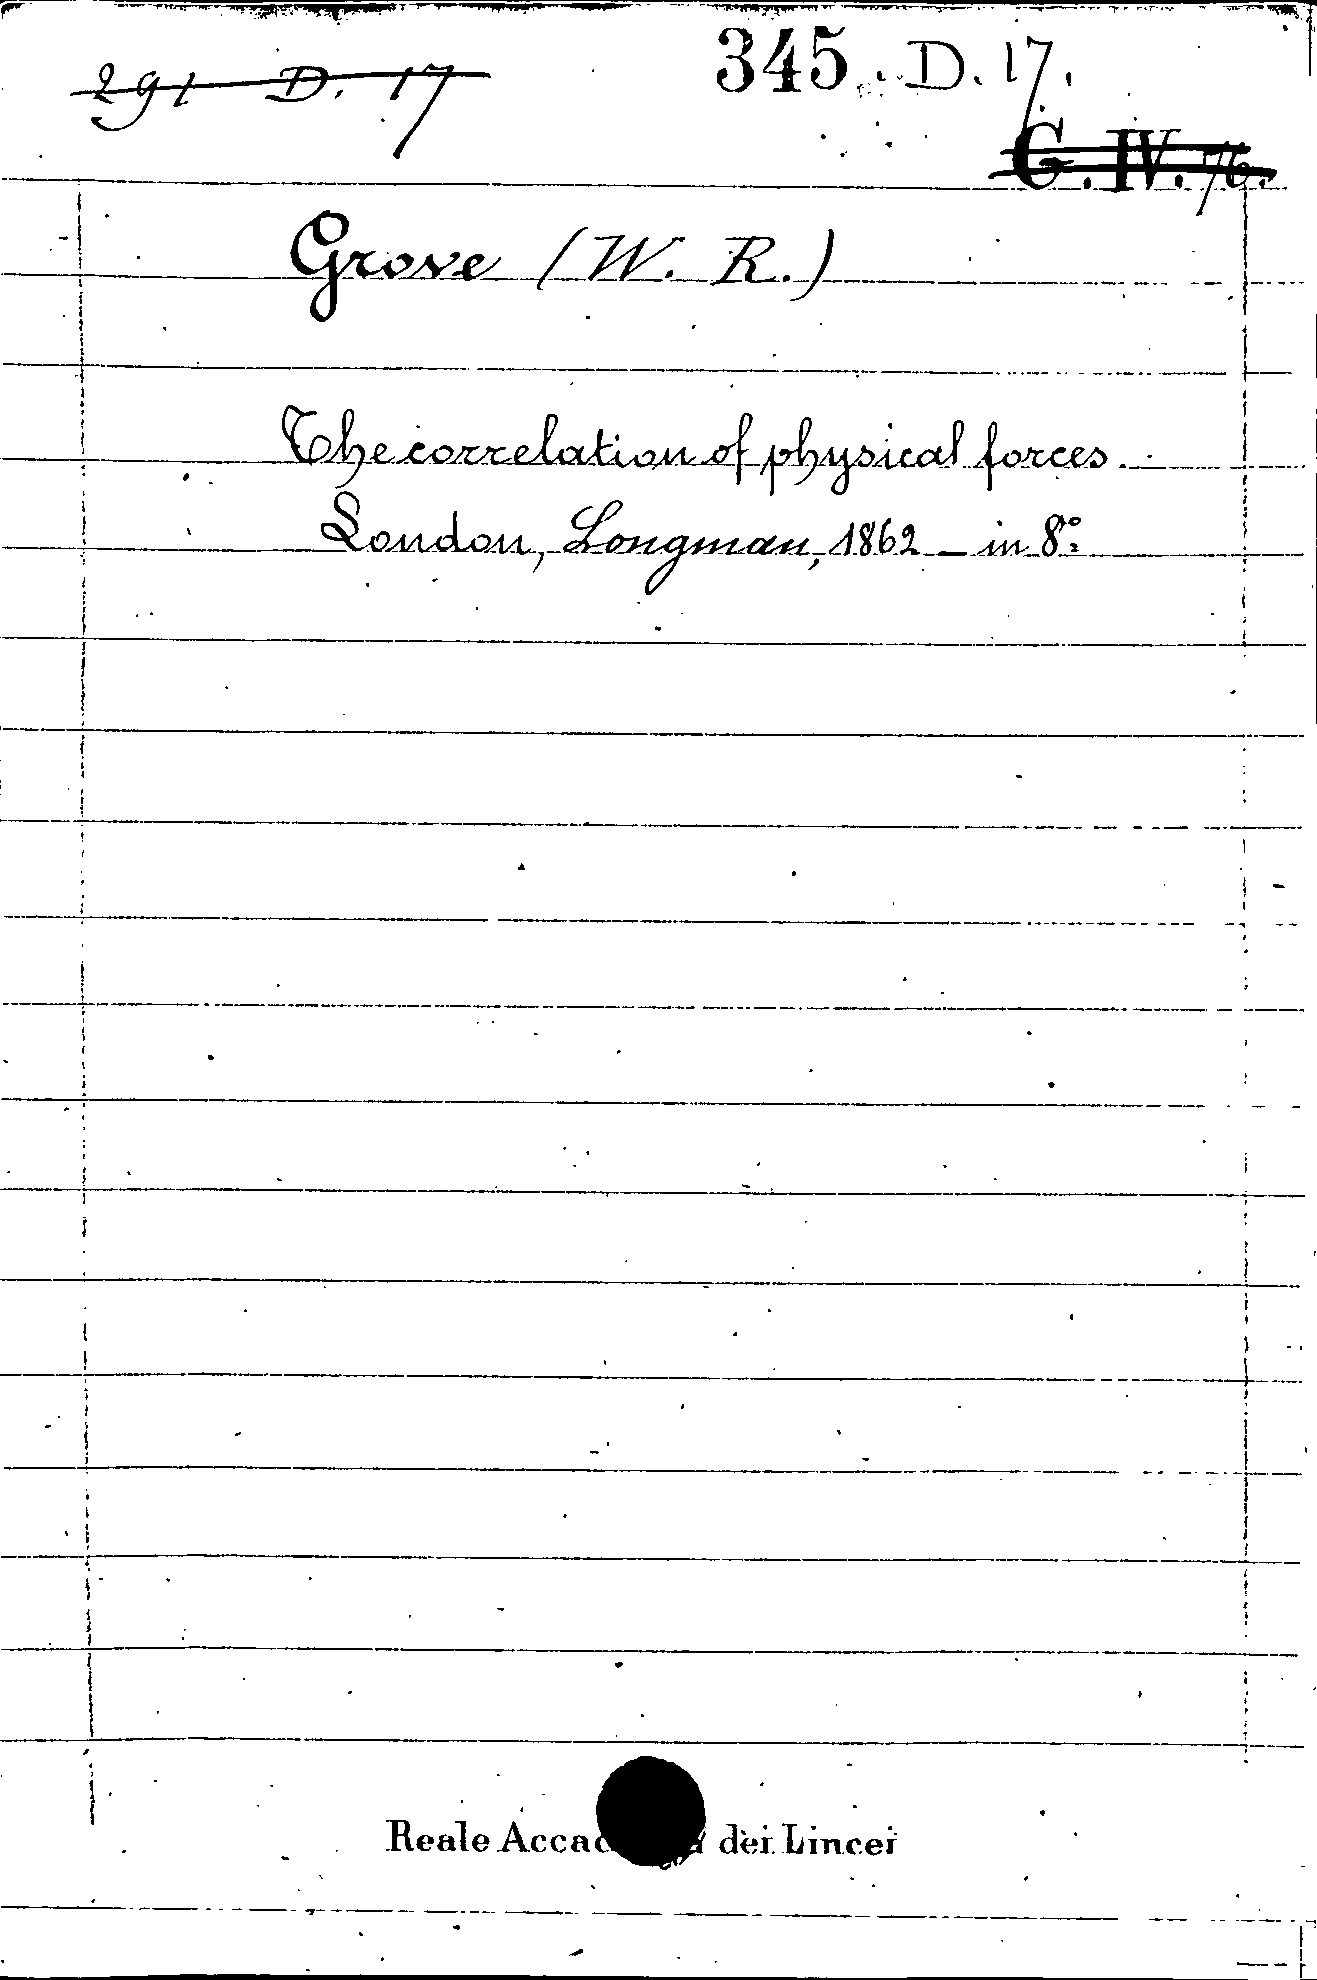 291 D. 17
345. D. 17.
G. IV. 76.
Grove (W. R.)
The correlation of physical forces.
London, Longman, 1862 - in 8º
Reale Accad dei Lincei